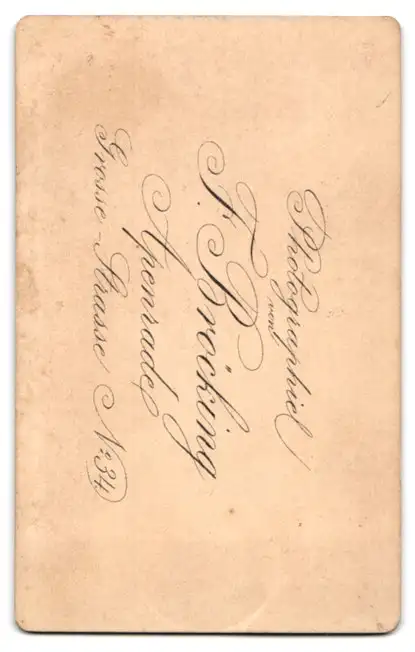 Photographie
von
F. Bröcking
Apenrade,
Grosse-Strasse No. 34.